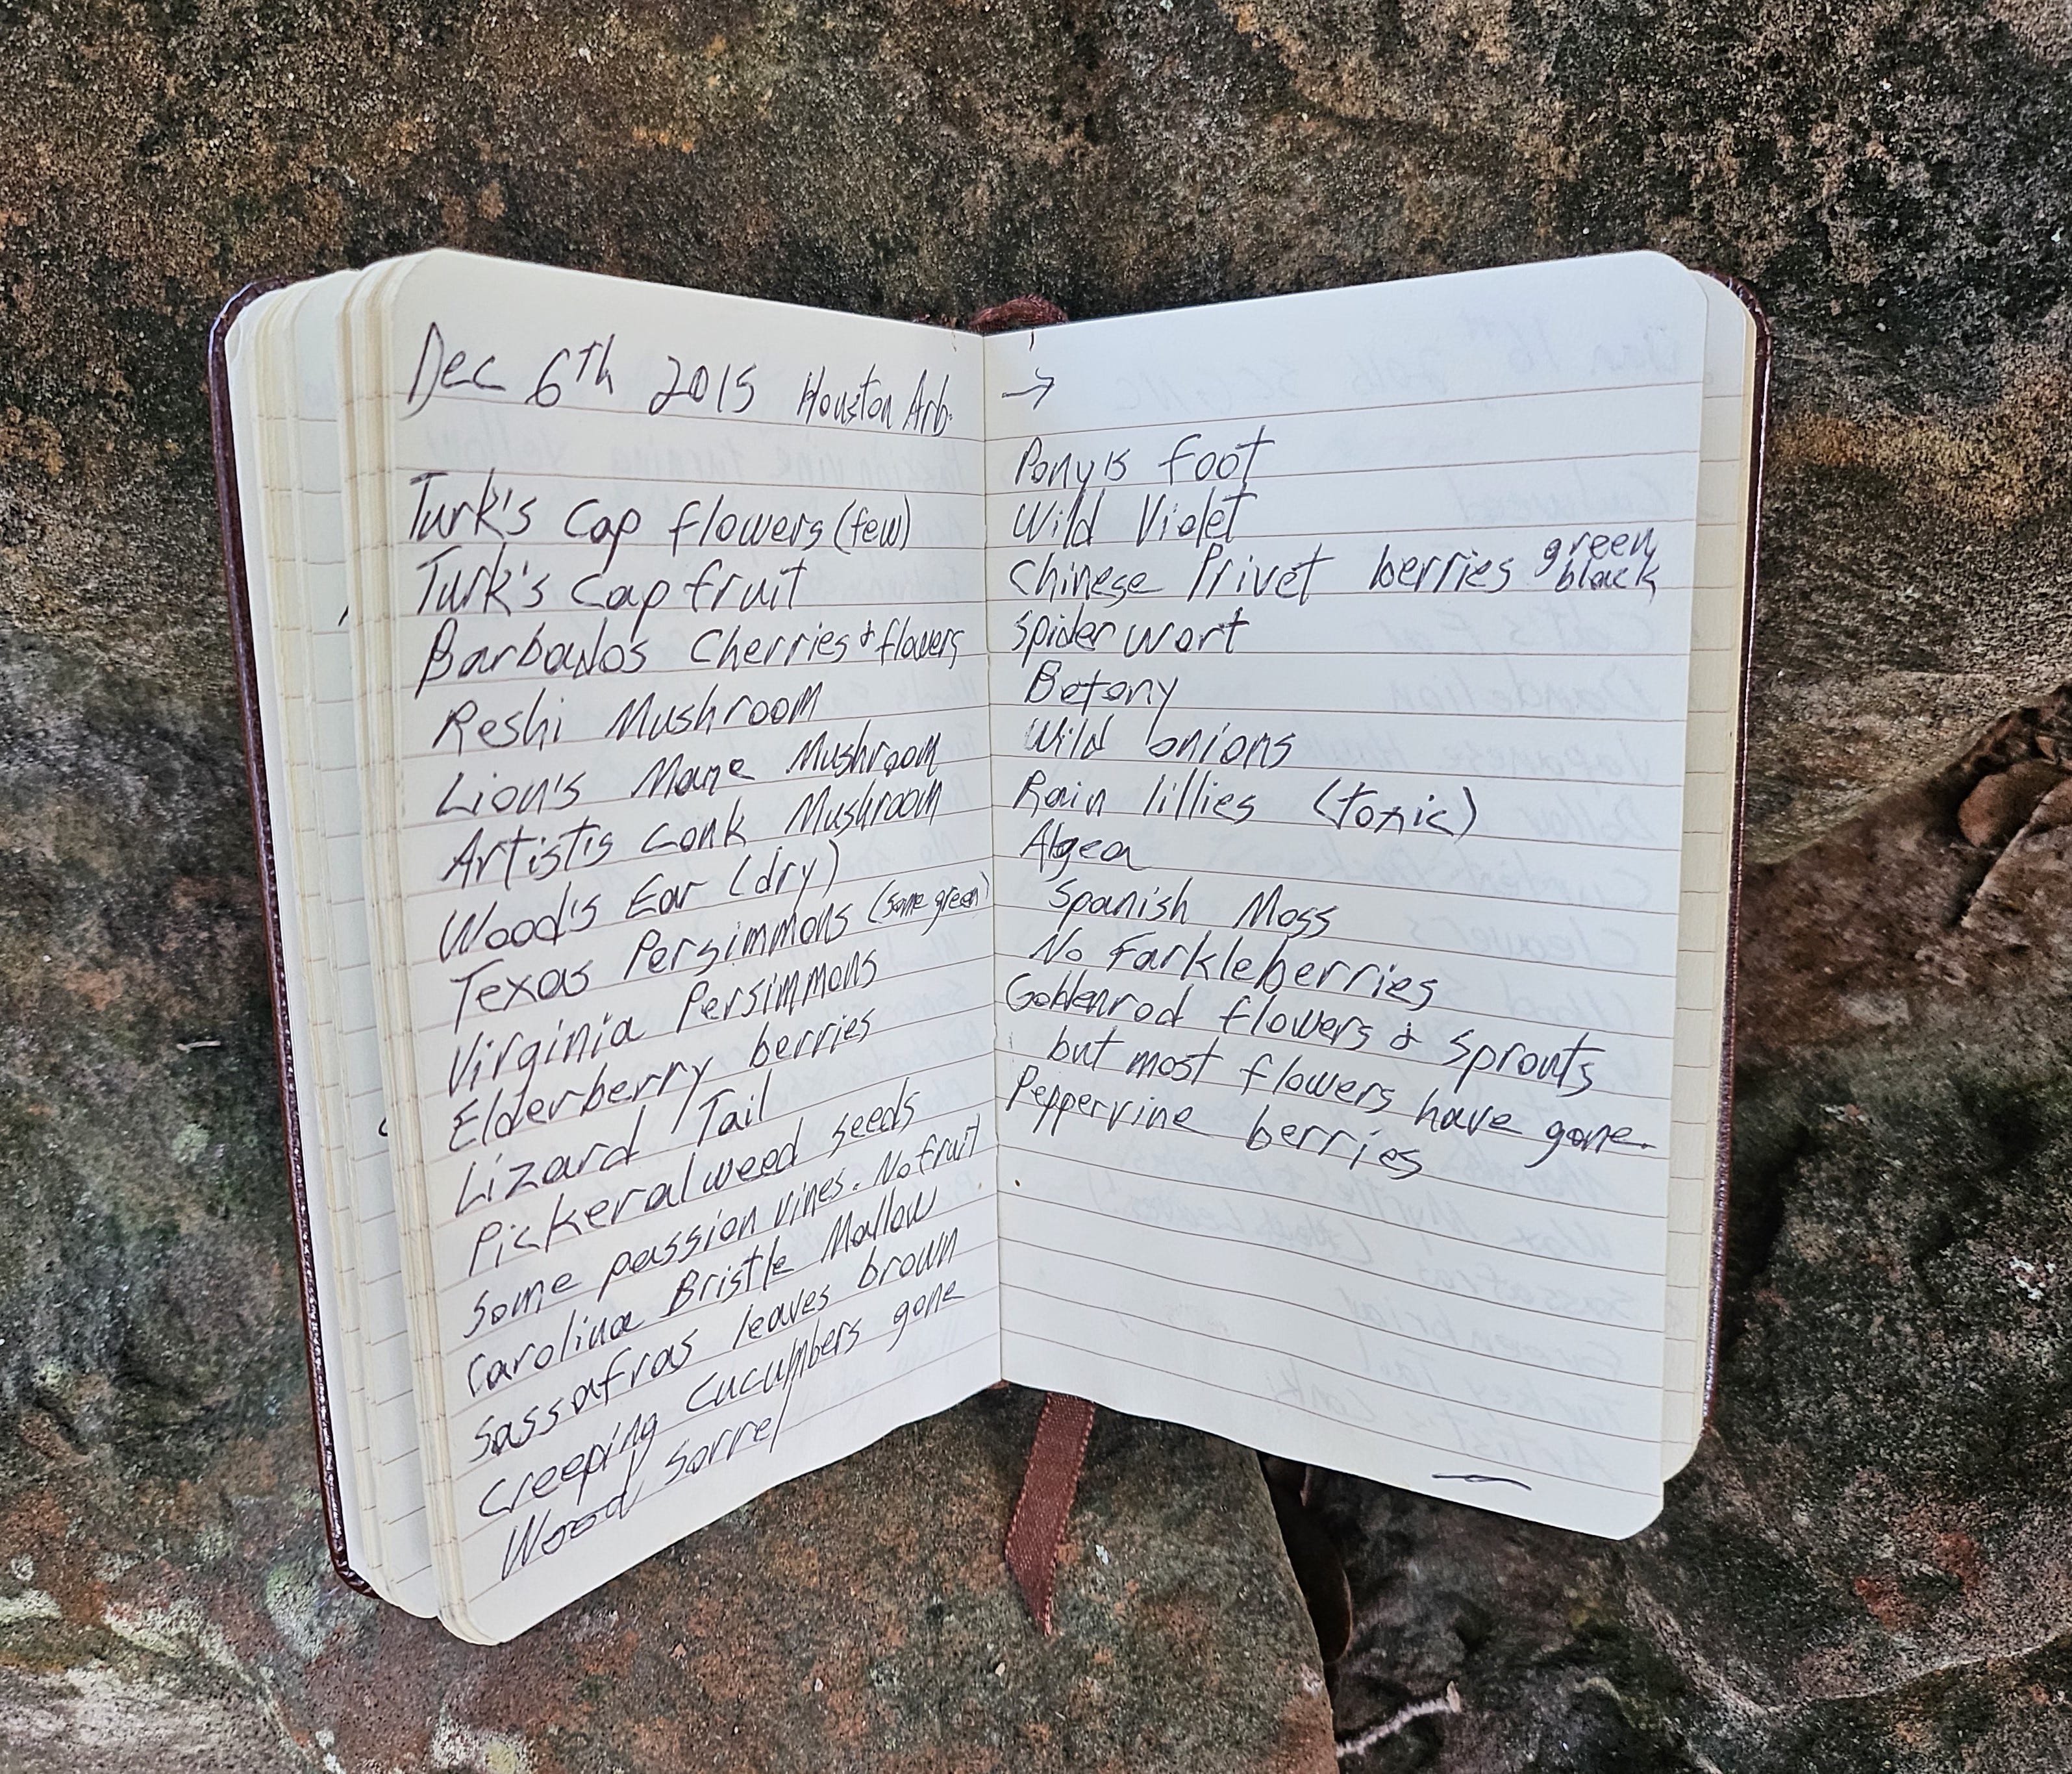 Dec 6th 2015 Houston Arb.
Turk's Cap flowers (few)
Turk's Cap fruit
Barbados Cherries & flowers
Reshi Mushroom
Lion's Mane Mushroom
Artist's Conk Mushroom
Wood's Ear (dry)
Texas Persimmons (some green)
Virginia Persimmons
Elderberry berries
Lizard Tail
Pickeralweed seeds
Some passion vines. No fruit
Carolina Bristle Mallow
Sassafras leaves brown
Creeping Cucumbers gone
Wood Sorrel
→
Pony's foot
Wild Violet
Chinese Privet berries green, black
Spider wort
Betony
Wild onions
Rain lillies (toxic)
Algea
Spanish Moss
No Farkleberries
Goldenrod flowers & sprouts
but most flowers have gone.
Peppervine berries